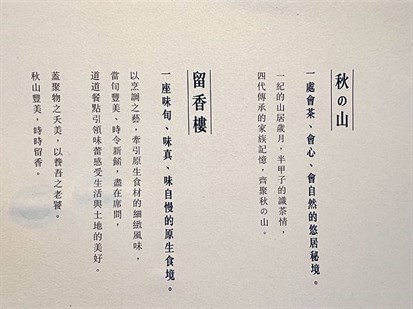 秋の山
一處會茶、會心、會自然的悠居秘境。
一紀的山居歲月，半甲子的讖茶情，
四代傳承的家族記憶，齊聚秋の山。
留香樓
一座味旬、味真、味自慢的原生食境。
以烹調之藝，牽引原生食材的細緻風味，
當旬豐美、時令新鮮，盡在席間，
道道餐點引領味蕾感受生活與土地的美好。
蓋聚物之夭美，以養吾之老饕。
秋山豐美，時時留香。